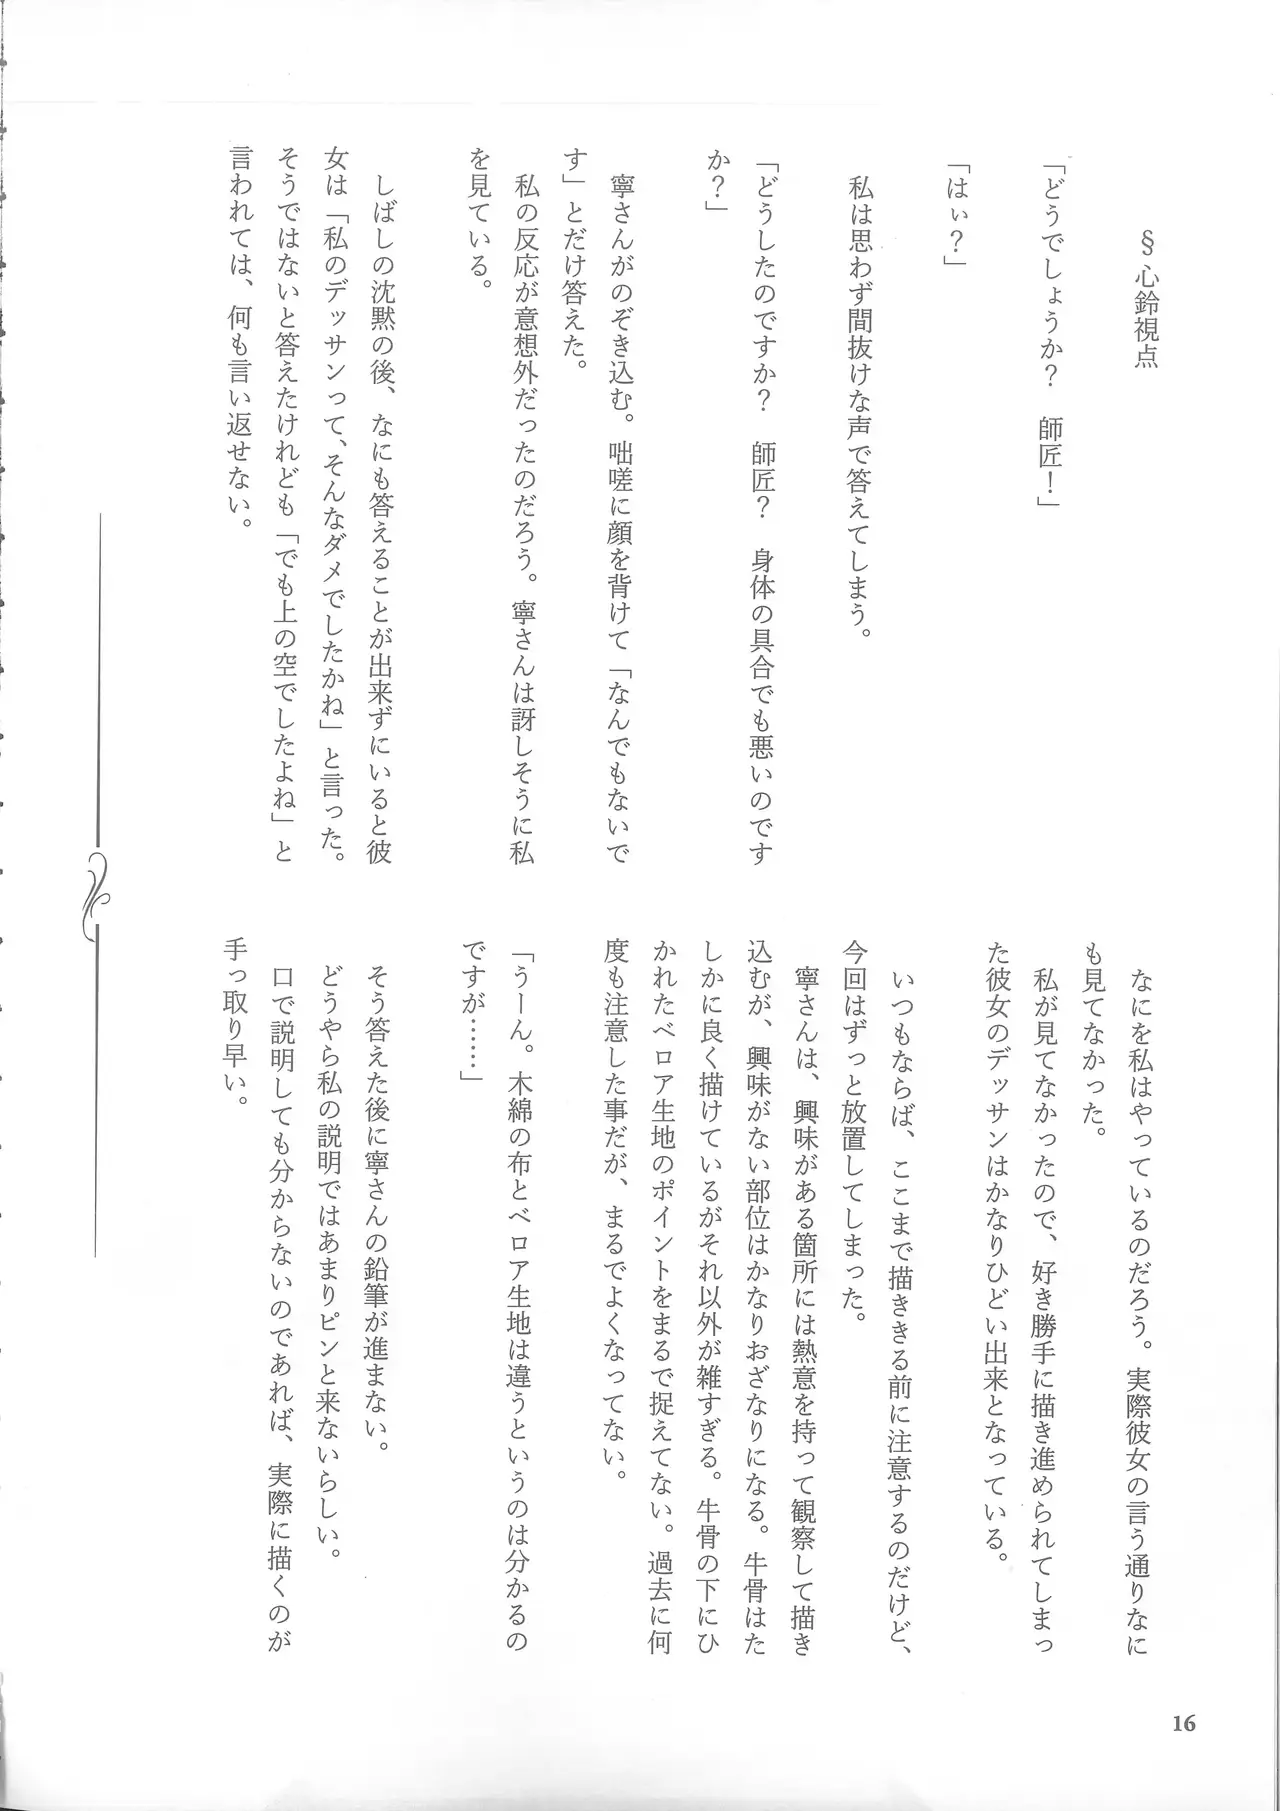 §心鈴視点
「どうでしょうか？　師匠！」
「はぃ？」
私は思わず間抜けな声で答えてしまう。
「どうしたのですか？　師匠？　身体の具合でも悪いのです
か？」
寧さんがのぞき込む。咄嗟に顔を背けて「なんでもないで
す」とだけ答えた。
私の反応が意想外だったのだろう。寧さんは訝しそうに私
を見ている。
しばしの沈黙の後、なにも答えることが出来ずにいると彼
女は「私のデッサンって、そんなダメでしたかね」と言った。
そうではないと答えたけれども「でも上の空でしたよね」と
言われては、何も言い返せない。
なにを私はやっているのだろう。実際彼女の言う通りなに
も見てなかった。
私が見てなかったので、好き勝手に描き進められてしまっ
た彼女のデッサンはかなりひどい出来となっている。
いつもならば、ここまで描ききる前に注意するのだけど、
今回はずっと放置してしまった。
寧さんは、興味がある箇所には熱意を持って観察して描き
込むが、興味がない部位はかなりおざなりになる。牛骨はた
しかに良く描けているがそれ以外が雑すぎる。牛骨の下にひ
かれたベロア生地のポイントをまるで捉えてない。過去に何
度も注意した事だが、まるでよくなってない。
「うーん。木綿の布とベロア生地は違うというのは分かるの
ですが……」
そう答えた後に寧さんの鉛筆が進まない。
どうやら私の説明ではあまりピンと来ないらしい。
口で説明しても分からないのであれば、実際に描くのが
手っ取り早い。
16